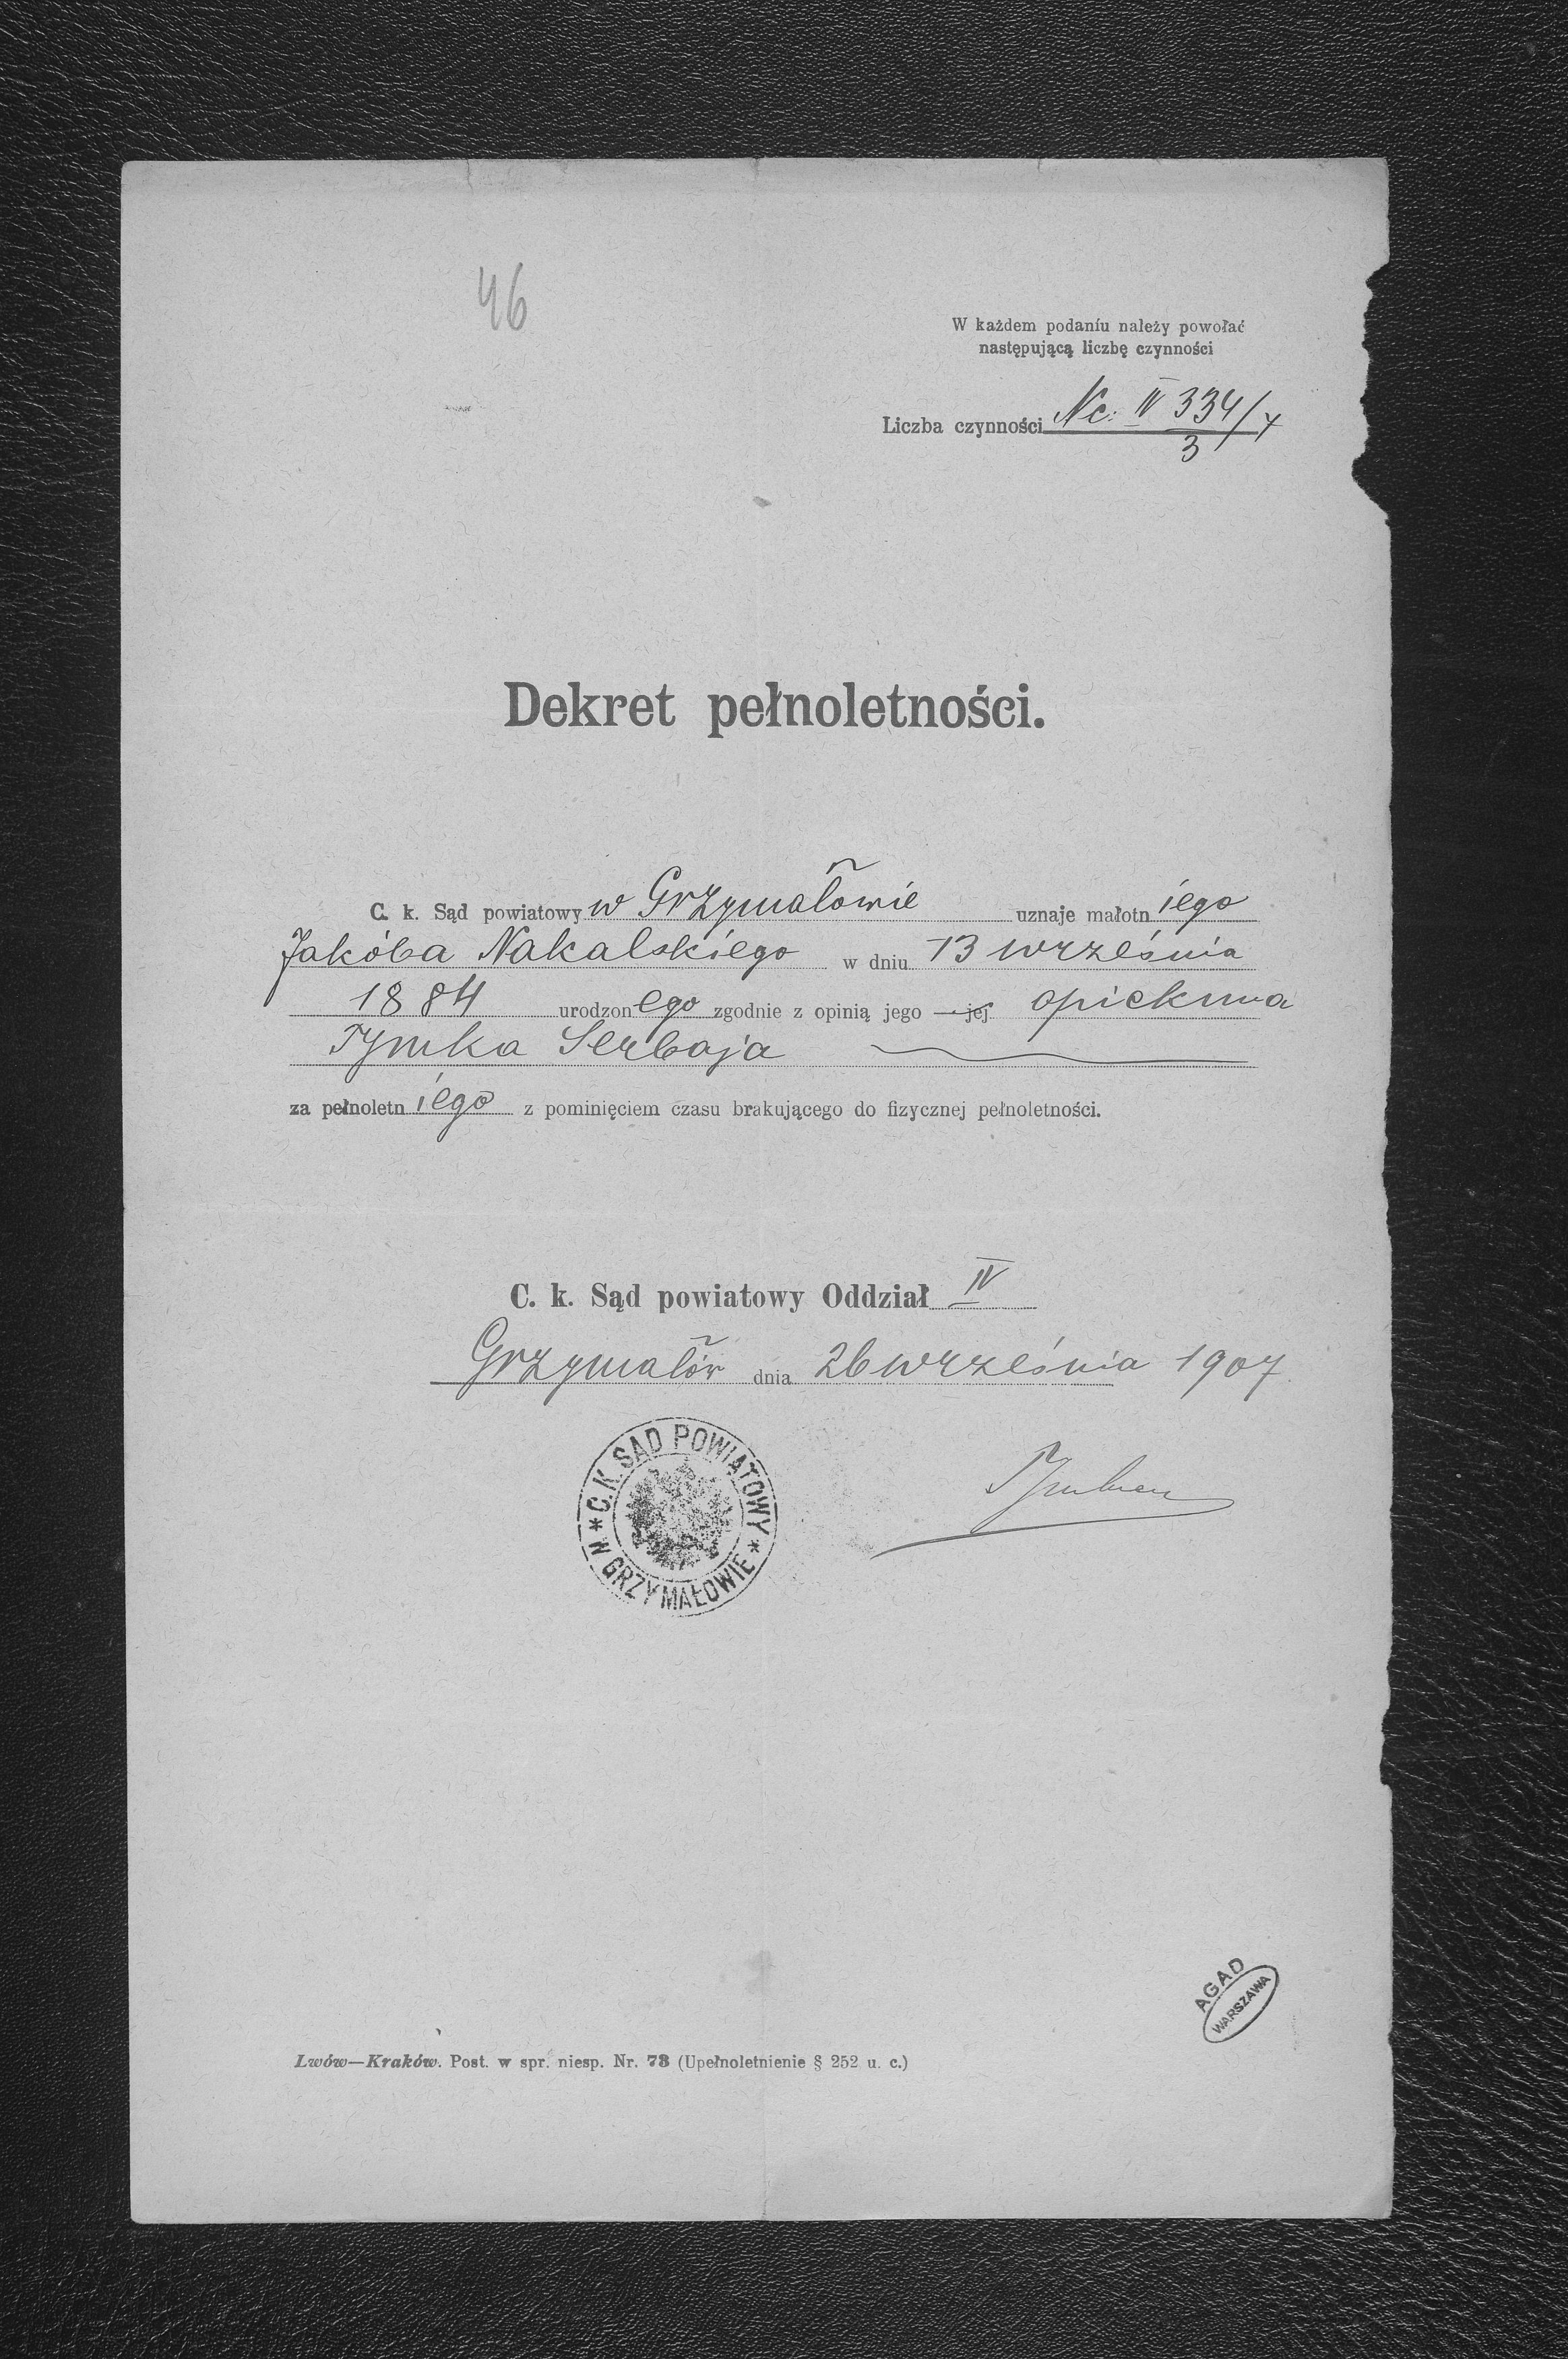 46
W każdem podaniu należy powołać
następującą liczbę czynności
Liczba czynności Nc: IV 334/7
3
Dekret pełnoletności.
C. k. Sąd powiatowy w Grzymałowie uznaje małotniego
Jakóba Nakalskiego w dniu 13 września
1884 urodzonego zgodnie z opinią jego — jej opiekuna
Tymka Serbaja
za pełnoletniego z pominięciem czasu brakującego do fizycznej pełnoletności.
C. k. Sąd powiatowy Oddział IV
Grzymałów dnia 26 września 1907
* C. K. SĄD POWIATOWY * W GRZYMAŁOWIE
AGAD
WARSZAWA
Lwów—Kraków. Post. w spr. niesp. Nr. 73 (Upełnoletnienie § 252 u. c.)